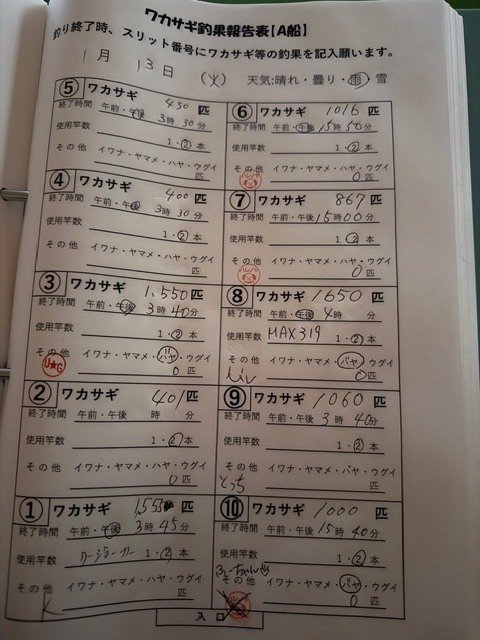 ワカサギ釣果報告表【A船】
釣り終了時、スリット番号にワカサギ等の釣果を記入願います。
1月 13日 (火) 天気:晴れ・曇り・雨・雪
⑤ ワカサギ 450 匹
終了時間 午前・午後 3時30分
使用竿数 1・2本
その他 イワナ・ヤマメ・ハヤ・ウグイ
匹
④ ワカサギ 400 匹
終了時間 午前・午後 3時30分
使用竿数 1・2本
その他 イワナ・ヤマメ・ハヤ・ウグイ
匹
③ ワカサギ 1,550 匹
終了時間 午前・午後 3時40分
使用竿数 1・2本
その他 イワナ・ヤマメ・ハヤ・ウグイ
0匹
② ワカサギ 401 匹
終了時間 午前・午後 時 分
使用竿数 1・2本
その他 イワナ・ヤマメ・ハヤ・ウグイ
0匹
① ワカサギ 匹
終了時間 午前・午後 3時45分
使用竿数 1・2本
その他 イワナ・ヤマメ・ハヤ・ウグイ
匹
⑥ ワカサギ 1016 匹
終了時間 午前・午後 15時50分
使用竿数 1・2本
その他 イワナ・ヤマメ・ハヤ・ウグイ
0匹
⑦ ワカサギ 867 匹
終了時間 午前・午後 15時00分
使用竿数 1・2本
その他 イワナ・ヤマメ・ハヤ・ウグイ
0匹
⑧ ワカサギ 1650 匹
終了時間 午前・午後 4時 分
使用竿数 MAX319 1・2本
その他 イワナ・ヤマメ・ハヤ・ウグイ
0匹
⑨ ワカサギ 1060 匹
終了時間 午前・午後 3時40分
使用竿数 1・2本
その他 イワナ・ヤマメ・ハヤ・ウグイ
とっち 匹
⑩ ワカサギ 1000 匹
終了時間 午前・午後 15時40分
使用竿数 1・2本
その他 イワナ・ヤマメ・ハヤ・ウグイ
0匹
入口